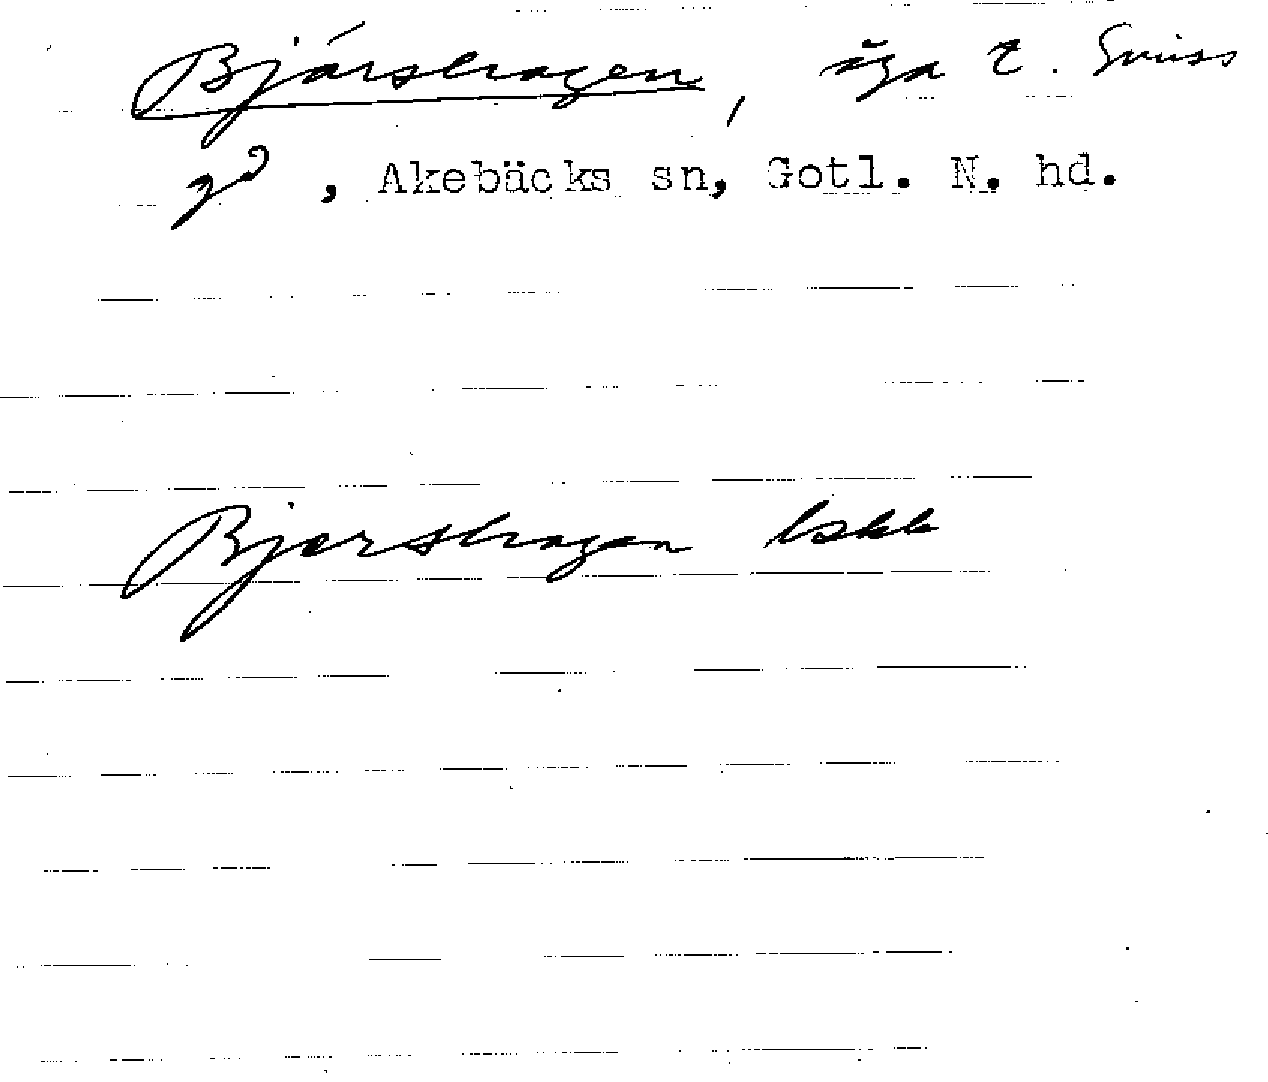 Bjárshagen, äga t. Smiss
gd, Akebäcks sn, Gotl. N. hd.
Bjershagen lskb